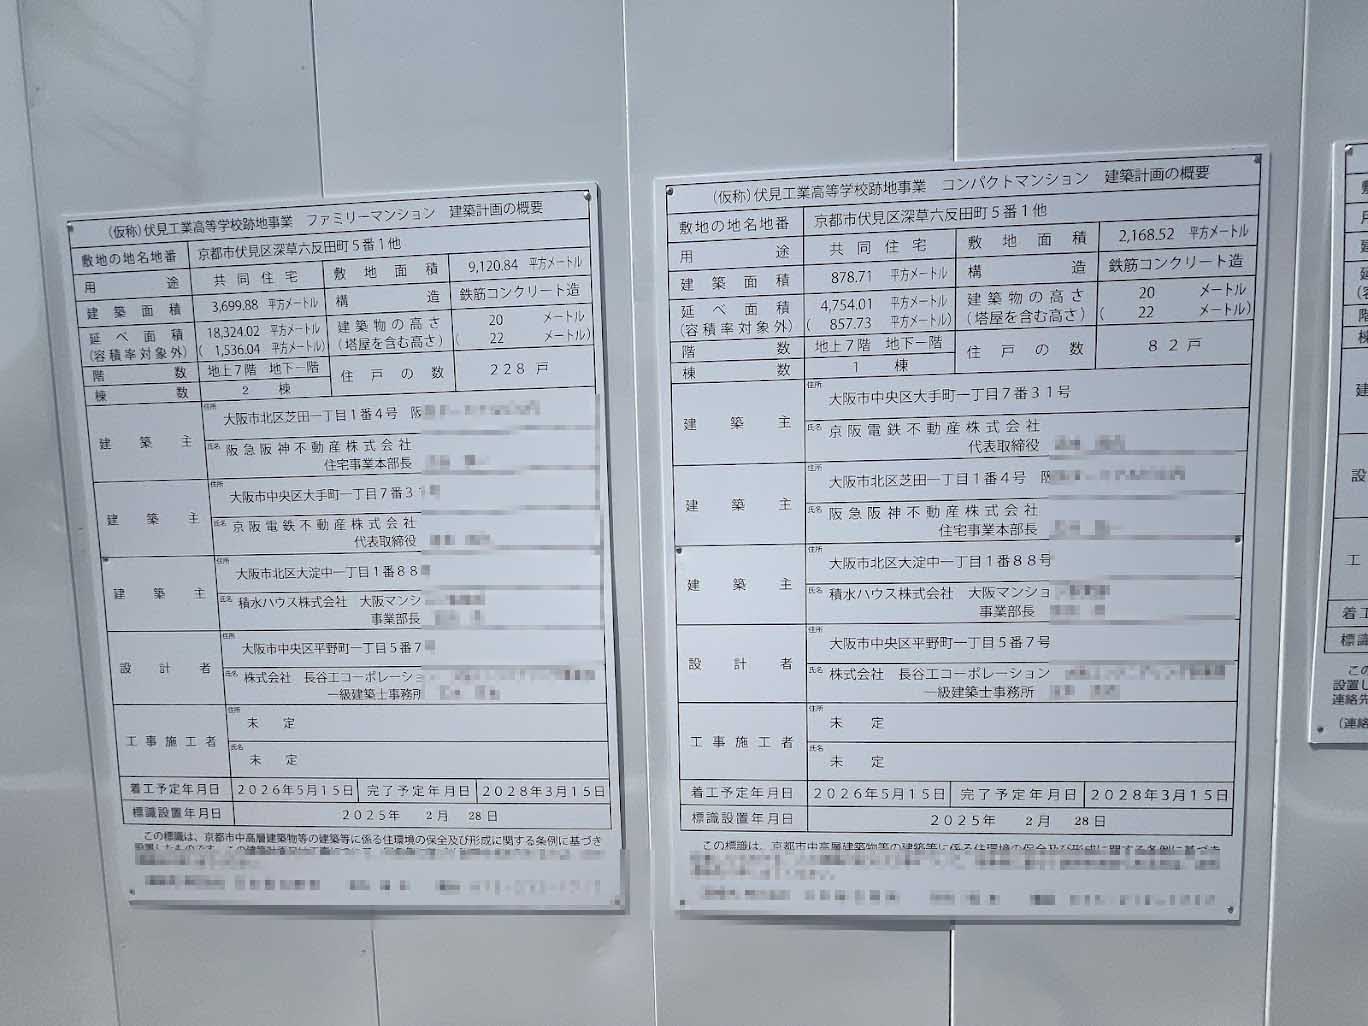 (仮称)伏見工業高等学校跡地事業 ファミリーマンション 建築計画の概要
敷地の地名地番 京都市伏見区深草六反田町5番1他
用途 共同住宅 敷地面積 9,120.84 平方メートル
建築面積 3,699.88 平方メートル 構造 鉄筋コンクリート造
延べ面積 18,324.02 平方メートル 建築物の高さ 20 メートル
(容積率対象外) ( 1,536.04 平方メートル) (塔屋を含む高さ) ( 22 メートル)
階数 地上7階 地下一階 住戸の数 228戸
棟数 2 棟
建築主 住所 大阪市北区芝田一丁目1番4号 阪
氏名 阪急阪神不動産株式会社
住宅事業本部長
建築主 住所 大阪市中央区大手町一丁目7番31号
氏名 京阪電鉄不動産株式会社
代表取締役
建築主 住所 大阪市北区大淀中一丁目1番88号
氏名 積水ハウス株式会社 大阪マンシ
事業部長
設計者 住所 大阪市中央区平野町一丁目5番7
氏名 株式会社 長谷工コーポレーショ
一級建築士事務所
工事施工者 住所 未定
氏名 未定
着工予定年月日 2026年5月15日 完了予定年月日 2028年3月15日
標識設置年月日 2025年 2月 28日
この標識は、京都市中高層建築物等の建築等に係る住環境の保全及び形成に関する条例に基づき
(仮称)伏見工業高等学校跡地事業 コンパクトマンション 建築計画の概要
敷地の地名地番 京都市伏見区深草六反田町5番1他
用途 共同住宅 敷地面積 2,168.52 平方メートル
建築面積 878.71 平方メートル 構造 鉄筋コンクリート造
延べ面積 4,754.01 平方メートル 建築物の高さ 20 メートル
(容積率対象外) ( 857.73 平方メートル) (塔屋を含む高さ) ( 22 メートル)
階数 地上7階 地下一階 住戸の数 82戸
棟数 1 棟
建築主 住所 大阪市中央区大手町一丁目7番31号
氏名 京阪電鉄不動産株式会社
代表取締役
建築主 住所 大阪市北区芝田一丁目1番4号 阪
氏名 阪急阪神不動産株式会社
住宅事業本部長
建築主 住所 大阪市北区大淀中一丁目1番88号
氏名 積水ハウス株式会社 大阪マンショ
事業部長
設計者 住所 大阪市中央区平野町一丁目5番7号
氏名 株式会社 長谷工コーポレーション
一級建築士事務所
工事施工者 住所 未定
氏名 未定
着工予定年月日 2026年5月15日 完了予定年月日 2028年3月15日
標識設置年月日 2025年 2月 28日
この標識は、京都市中高層建築物等の建築等に係る住環境の保全及び形成に関する条例に基づき